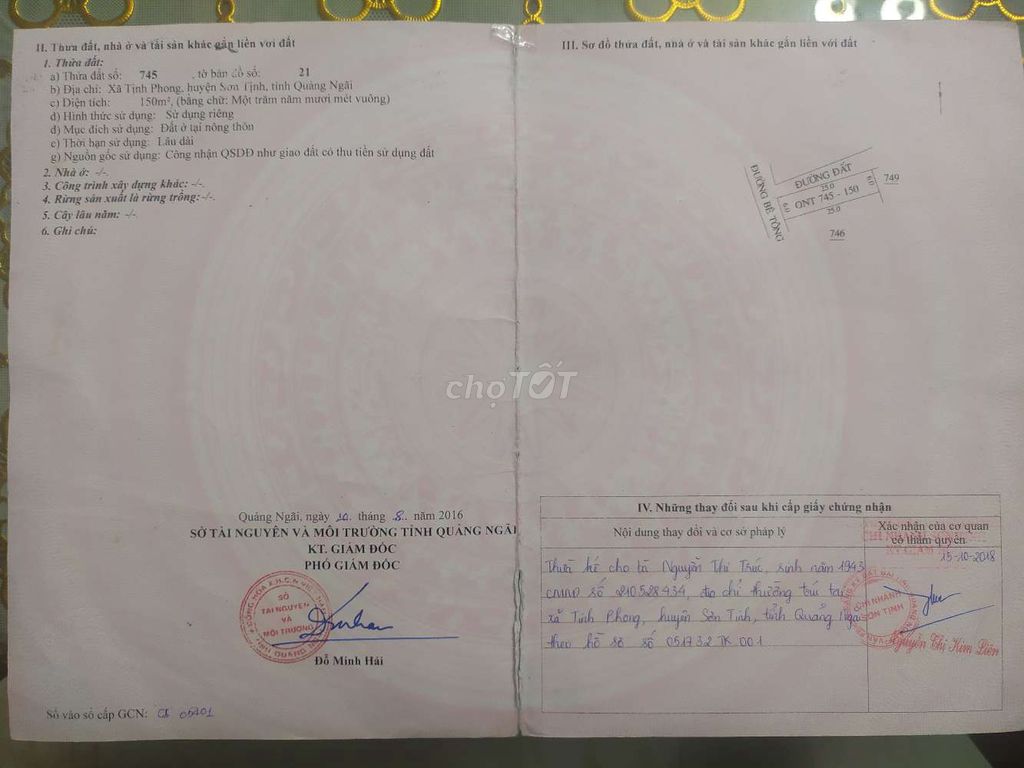 II. Thửa đất, nhà ở và tài sản khác gắn liền với đất
1. Thửa đất:
a) Thửa đất số: 745 , tờ bản đồ số: 21
b) Địa chỉ: Xã Tịnh Phong, huyện Sơn Tịnh, tỉnh Quảng Ngãi
c) Diện tích: 150m², (bằng chữ: Một trăm năm mươi mét vuông)
d) Hình thức sử dụng: Sử dụng riêng
đ) Mục đích sử dụng: Đất ở tại nông thôn
e) Thời hạn sử dụng: Lâu dài
g) Nguồn gốc sử dụng: Công nhận QSDĐ như giao đất có thu tiền sử dụng đất
2. Nhà ở: -/-.
3. Công trình xây dựng khác: -/-.
4. Rừng sản xuất là rừng trồng:-/-.
5. Cây lâu năm: -/-.
6. Ghi chú:
Quảng Ngãi, ngày 10 tháng 8 năm 2016
SỞ TÀI NGUYÊN VÀ MÔI TRƯỜNG TỈNH QUẢNG NGÃI
KT. GIÁM ĐỐC
PHÓ GIÁM ĐỐC
SỞ
TÀI NGUYÊN
VÀ
MÔI TRƯỜNG
Đỗ Minh Hải
Số vào sổ cấp GCN: CS 05401
III. Sơ đồ thửa đất, nhà ở và tài sản khác gắn liền với đất
ĐƯỜNG BÊ TÔNG
ĐƯỜNG ĐẤT
25.0
6.0
ONT 745 - 150
6.0
25.0
749
746
chợTỐT
IV. Những thay đổi sau khi cấp giấy chứng nhận
Nội dung thay đổi và cơ sở pháp lý
Xác nhận của cơ quan
có thẩm quyền
15-10-2018
Thừa kế cho bà Nguyễn Thị Trúc, sinh năm 1943
CMND số 210528434, địa chỉ thường trú tại
xã Tịnh Phong, huyện Sơn Tịnh, tỉnh Quảng Ngãi
theo hồ sơ số 051732.TK.001
CHI NHÁNH
SƠN TỊNH
Nguyễn Thị Kim Liên